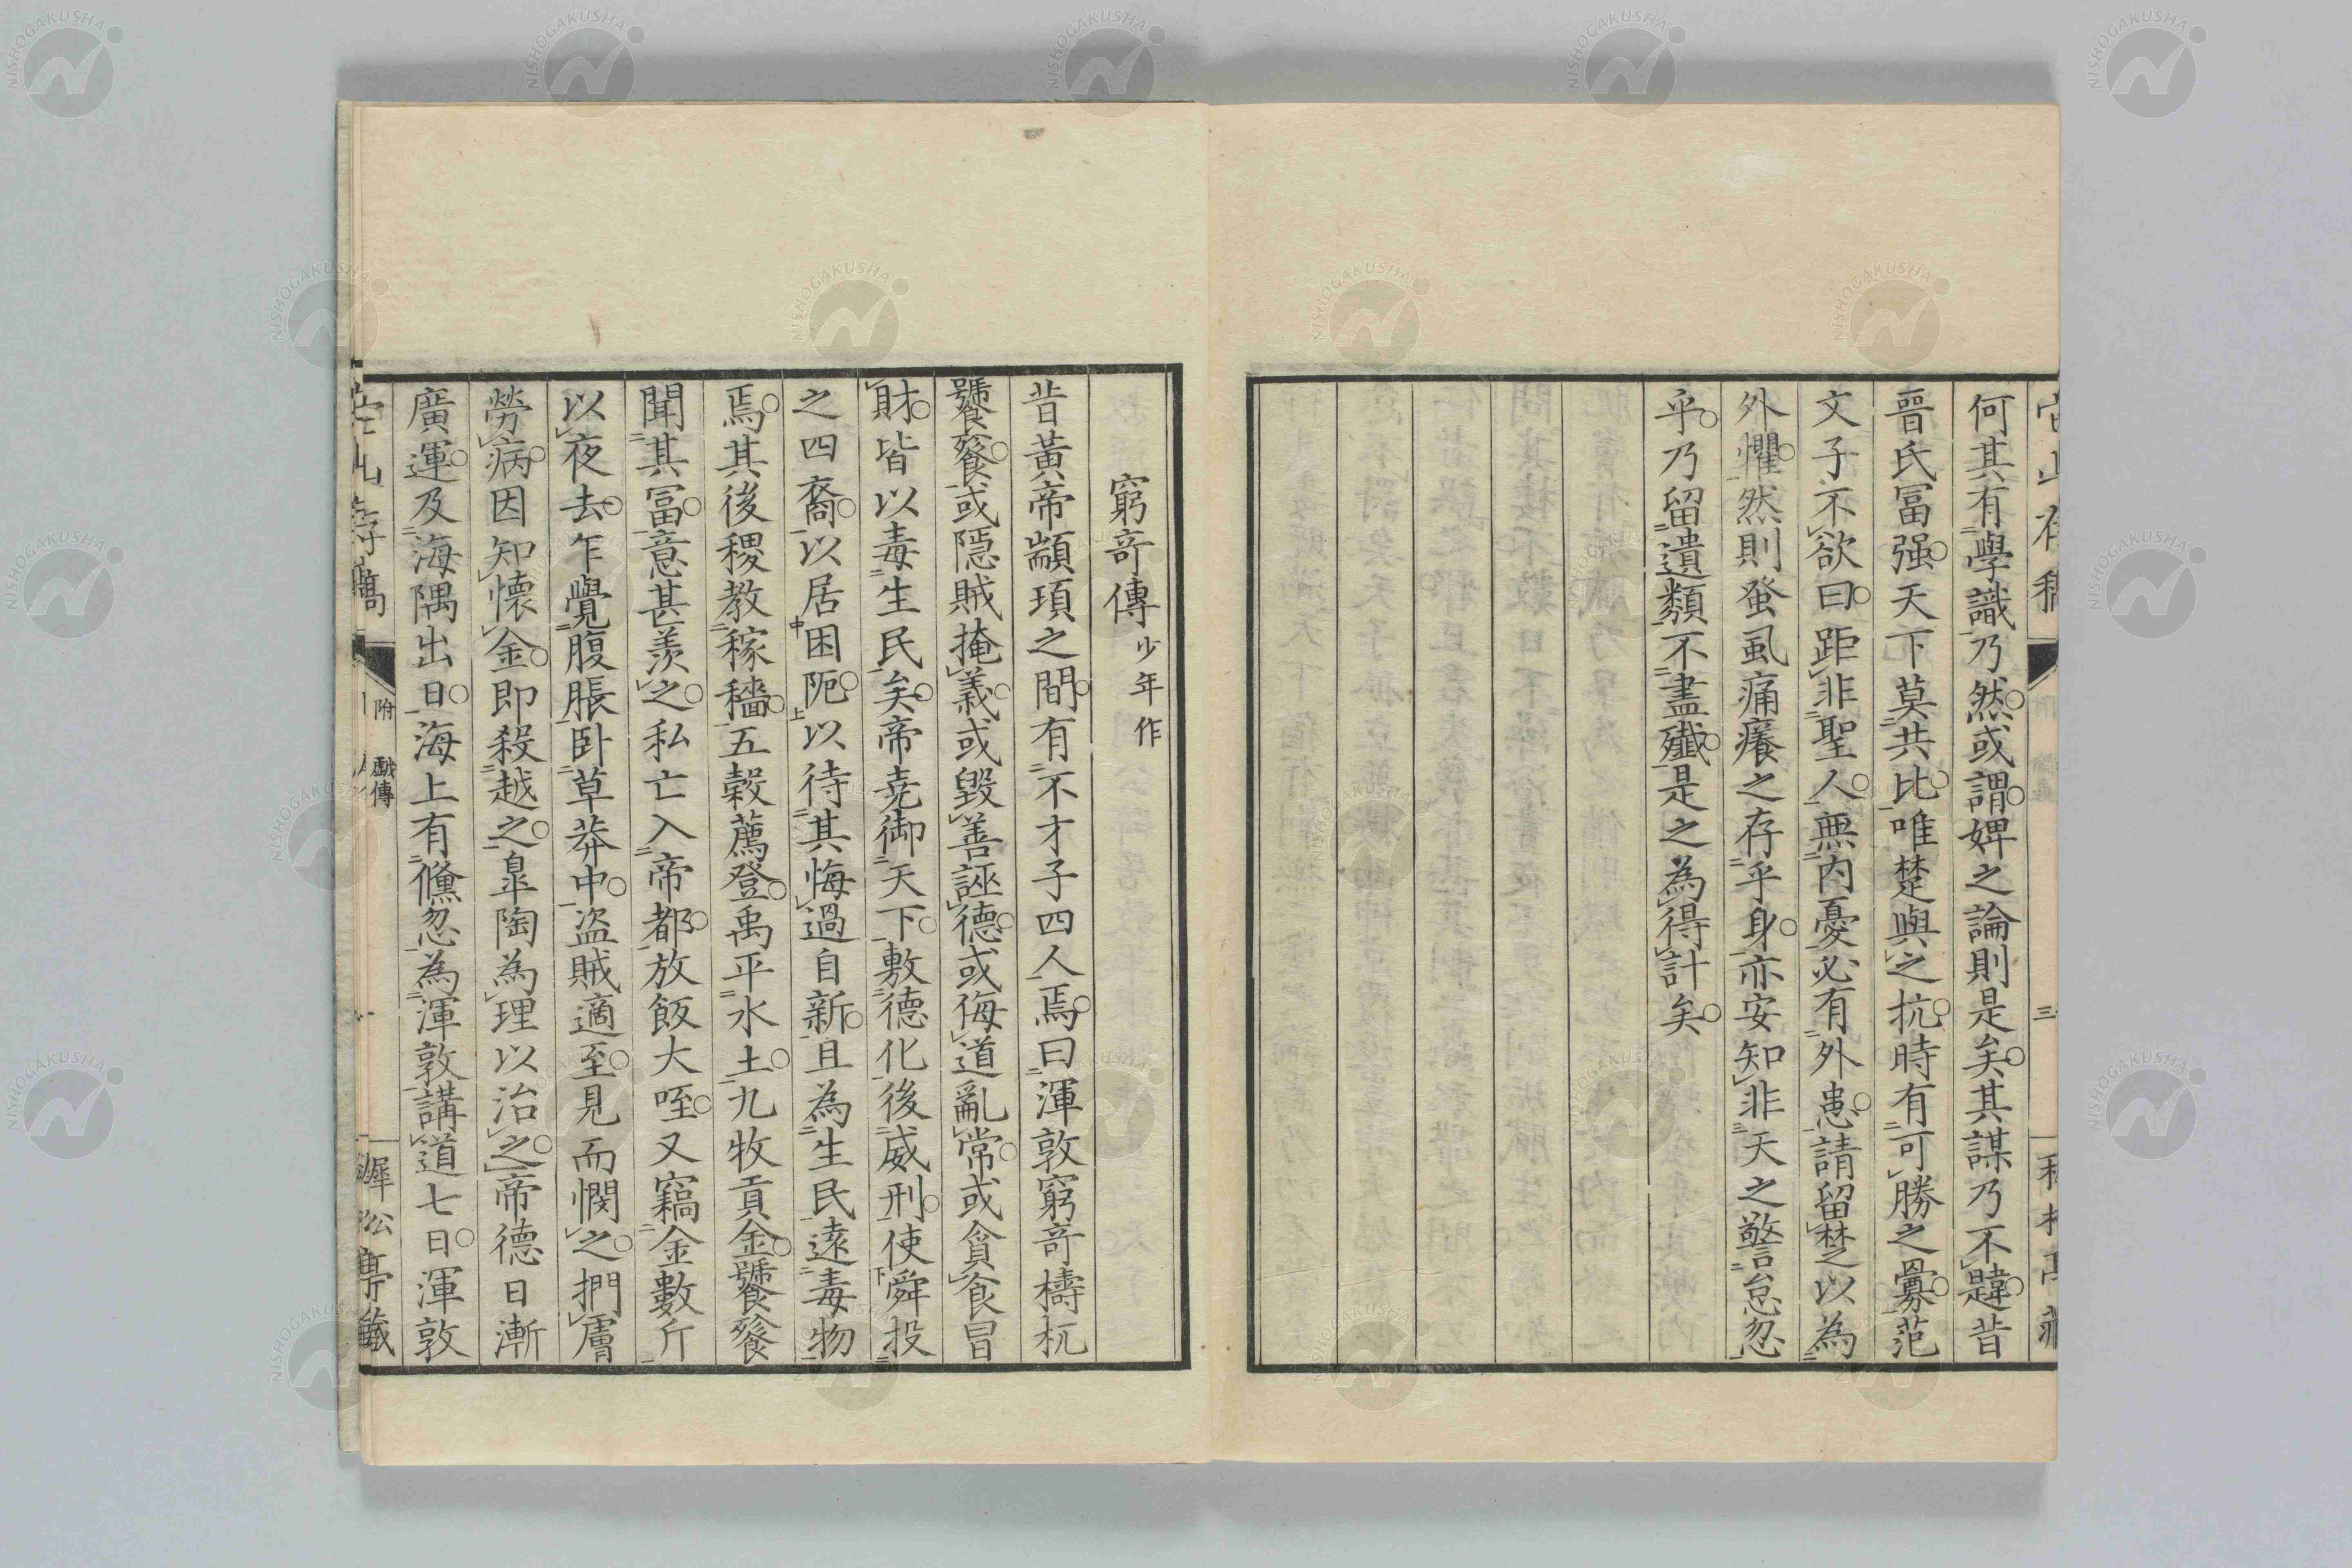 何其有學識乃然或謂婢之論則是矣其謀乃不韙昔
晉氏冨强天下莫共比唯楚與之抗時有可勝之釁范
文子不欲曰距非聖人無內憂必有外患請留楚以為
外懼然則蚤虱痛癢之存乎身亦安知非天之警怠忽
乎乃留遺類不盡殲是之為得計矣
三
窮奇傳 少年作
昔黃帝顓頊之間有不才子四人焉曰渾敦窮奇檮杌
饕餮或隱賊掩義或毀善誣德或侮道亂常或貪食冒
財皆以毒生民矣帝尭御天下敷德化後威刑使舜投
之四裔以居困阨以待其悔過自新且為生民遠毒物
焉其後稷教稼穡五穀薦登禹平水土九牧貢金饕餮
聞其冨意甚羨之私亡入帝都放飯大咥又竊金數斤
以夜去乍覺腹脹卧草莽中盜賊適至見而憫之捫膚
勞病因知懷金即殺越之皐陶為理以治之帝德日漸
廣運及海隅出日海上有儵忽為渾敦講道七日渾敦
附 戲傳
NISHOGAKUSHA